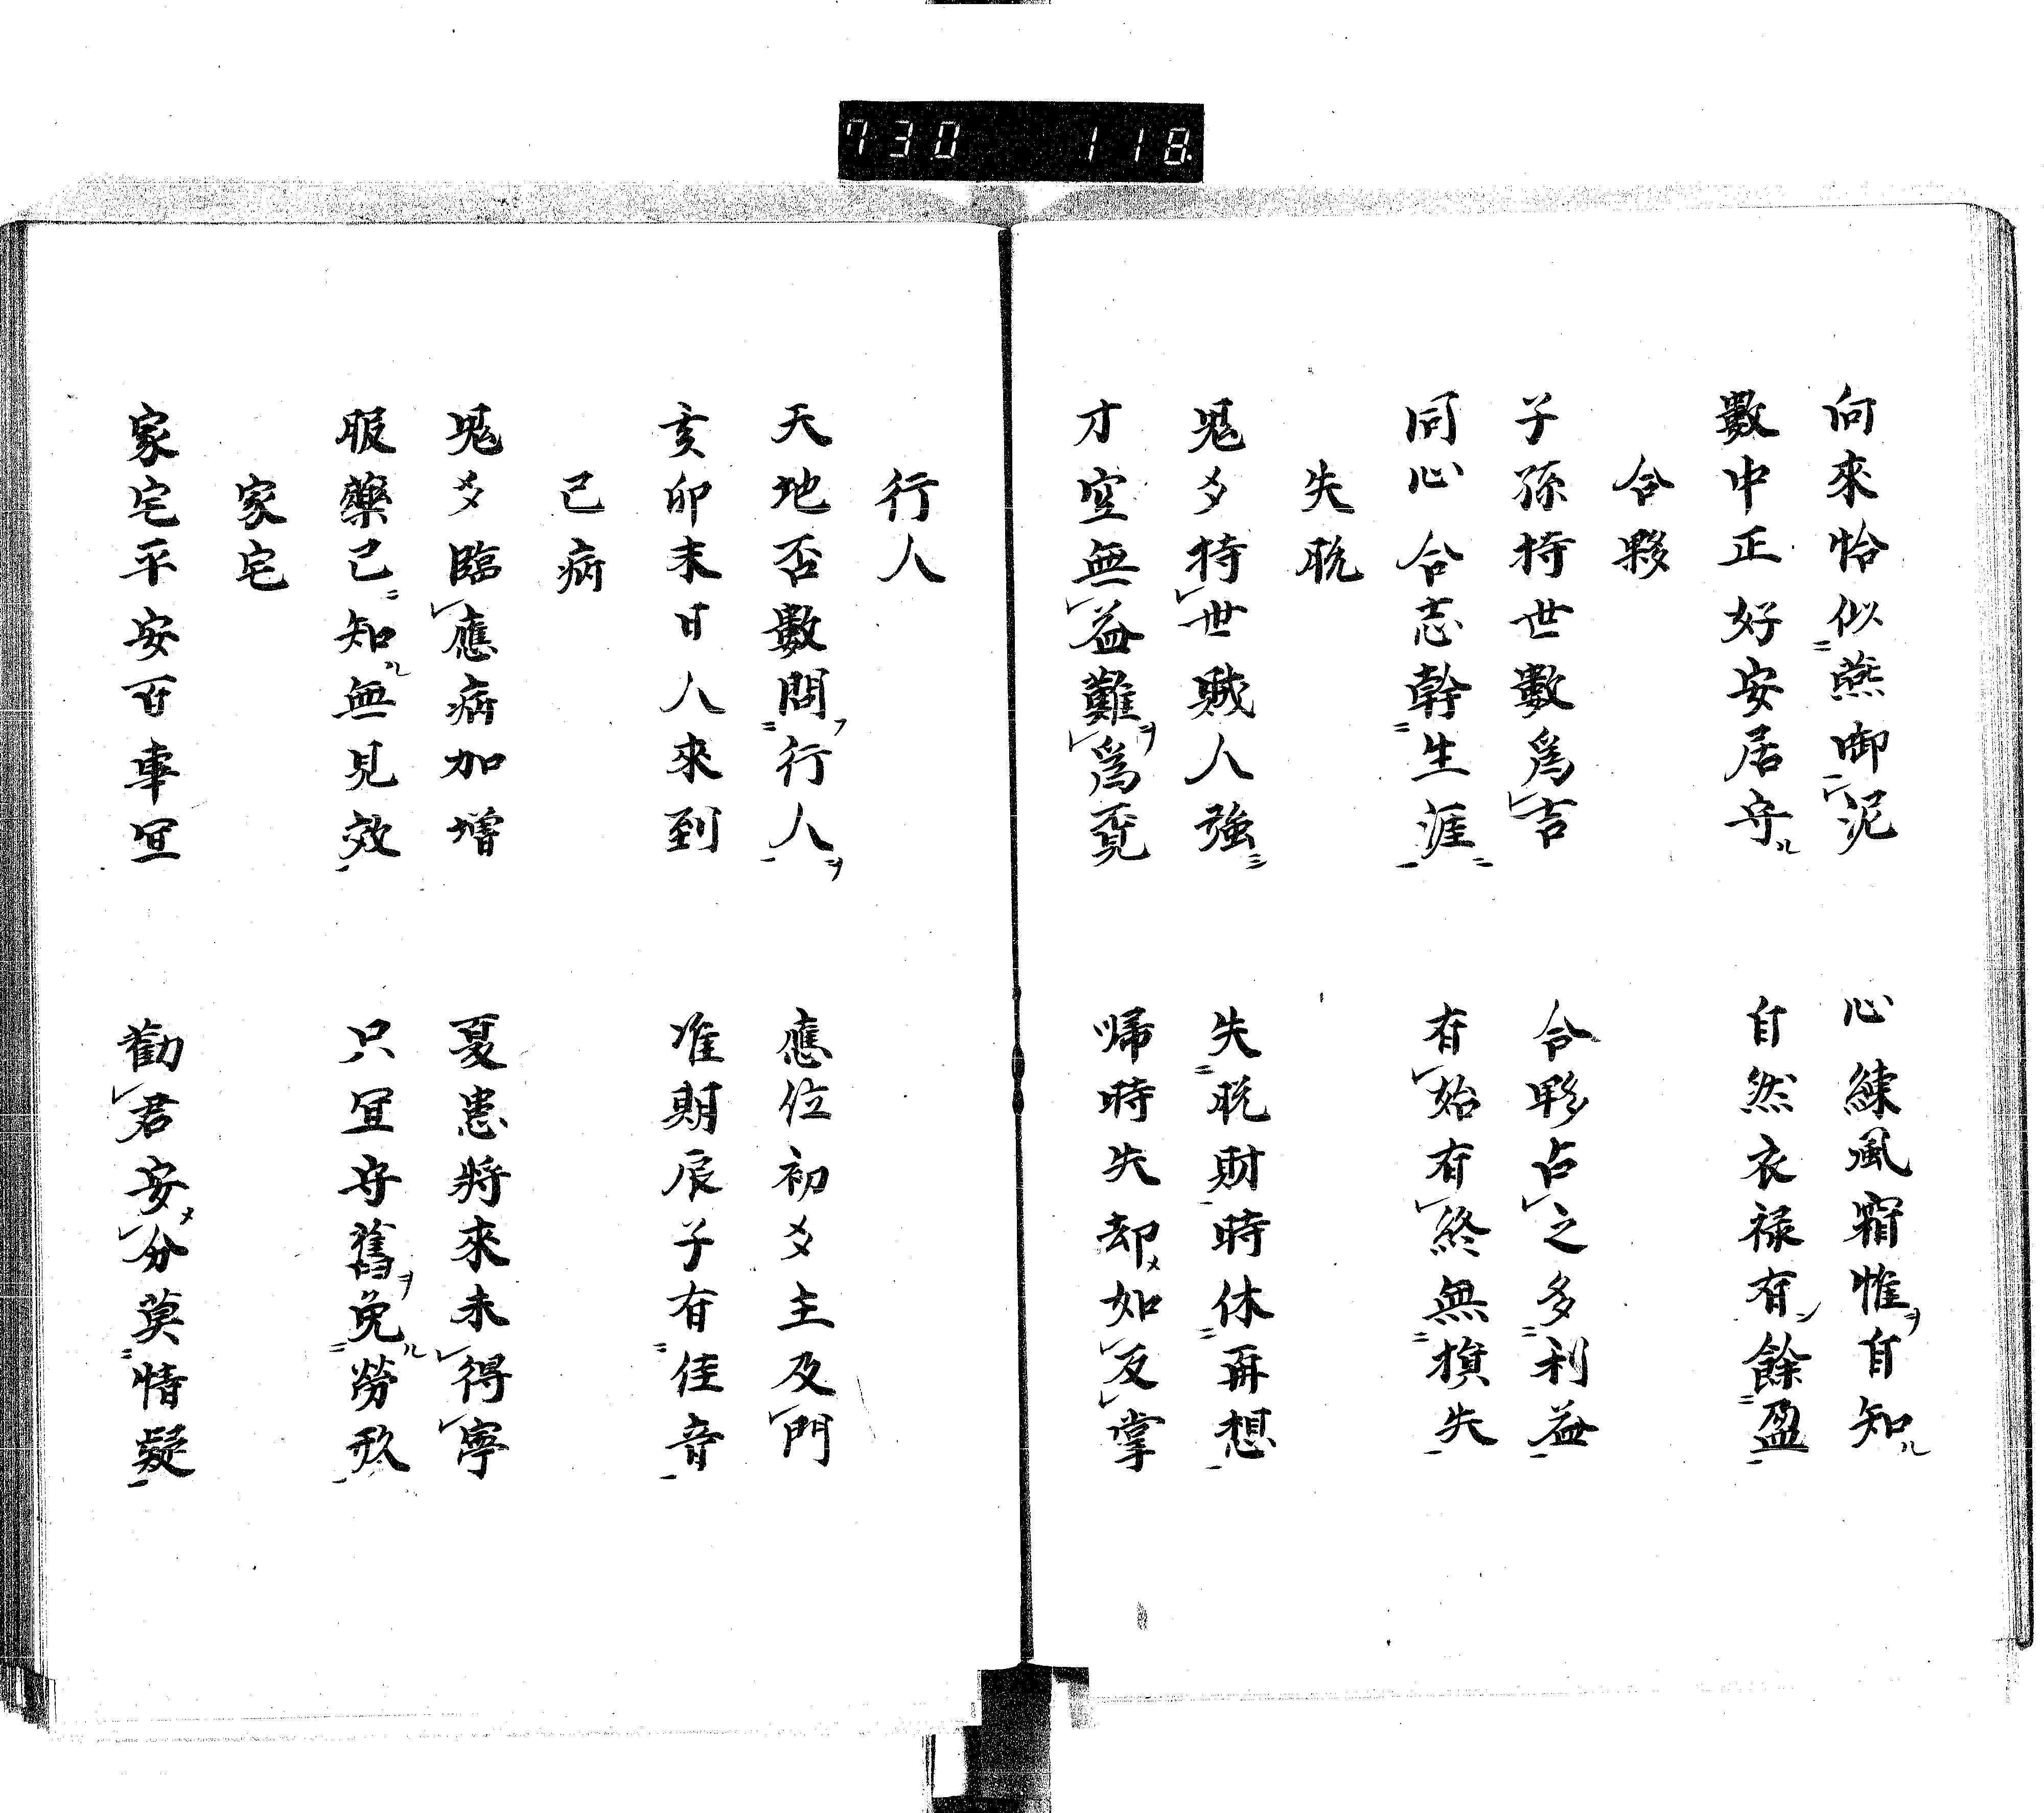 730 118
向來恰似燕啣泥 心練風霜惟自知
數中正好安居守 自然衣禄有餘盈
合夥
子孫持世數爲吉 合夥占之多利益
同心合志幹生涯 有始有終無損失
失脱
鬼爻持世賊人強 失脱財時休再想
才空無益難爲覓 帰時失却如反掌
行人
天地否數問行人 應位初爻主及門
亥卯未日人來到 准期辰子有佳音
己病
鬼爻臨應病加增 憂患將來未得寧
服藥己知無見效 只宜守舊免勞形
家宅
家宅平安百事宜 勸君安分莫情疑